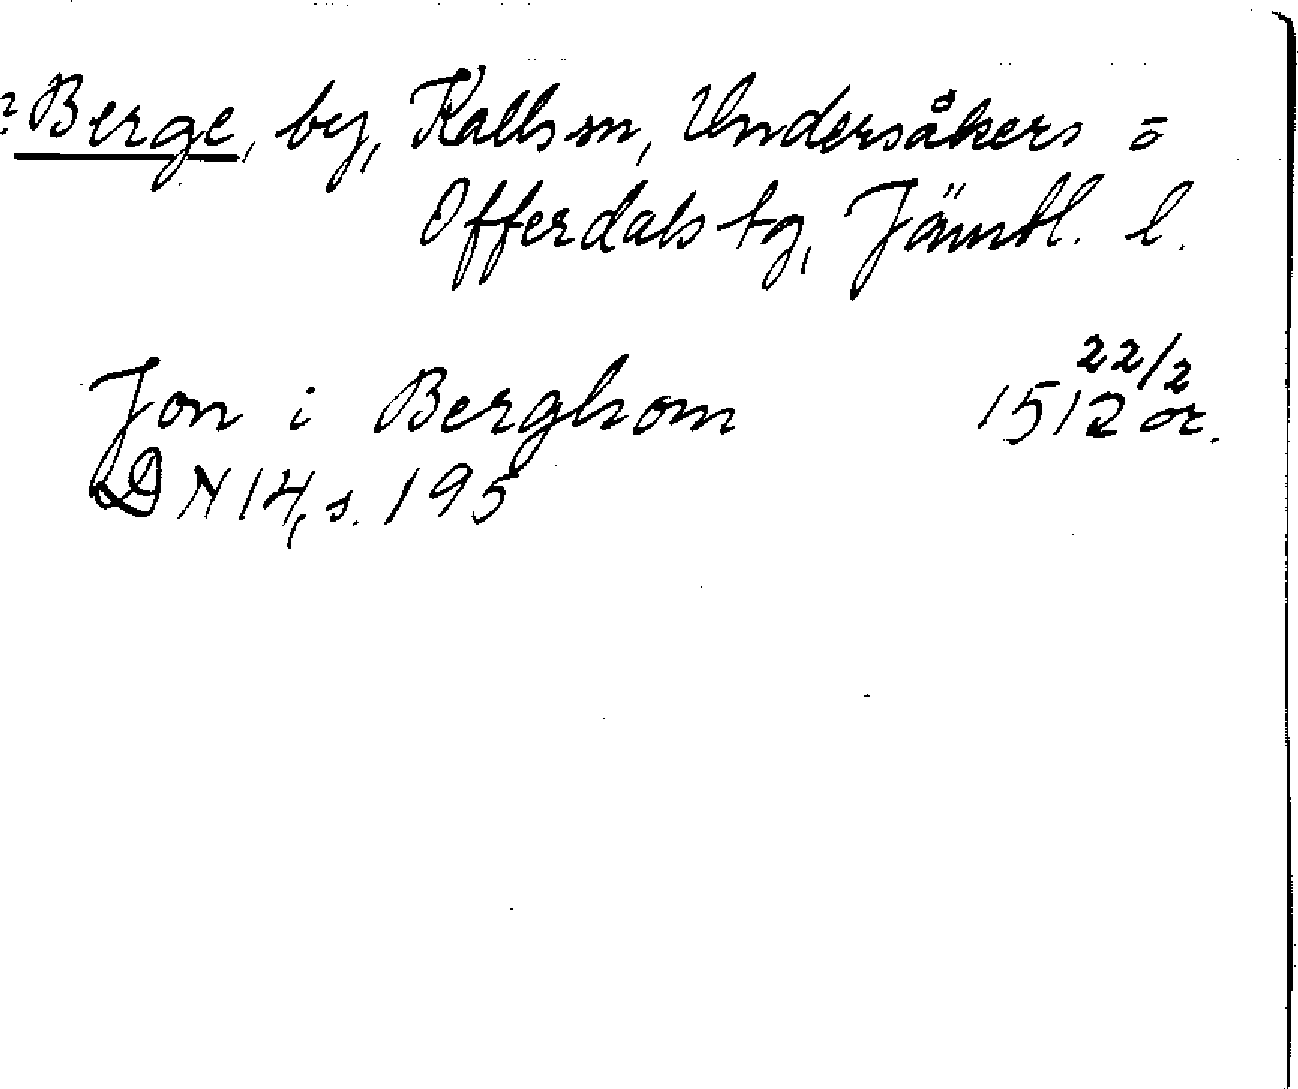 ? Berge, by, Kalls sn, Undersåkers o
Offerdals tg, Jämtl. l.
Jon i Berghom 22/2 1512 or.
DN 14, s. 195